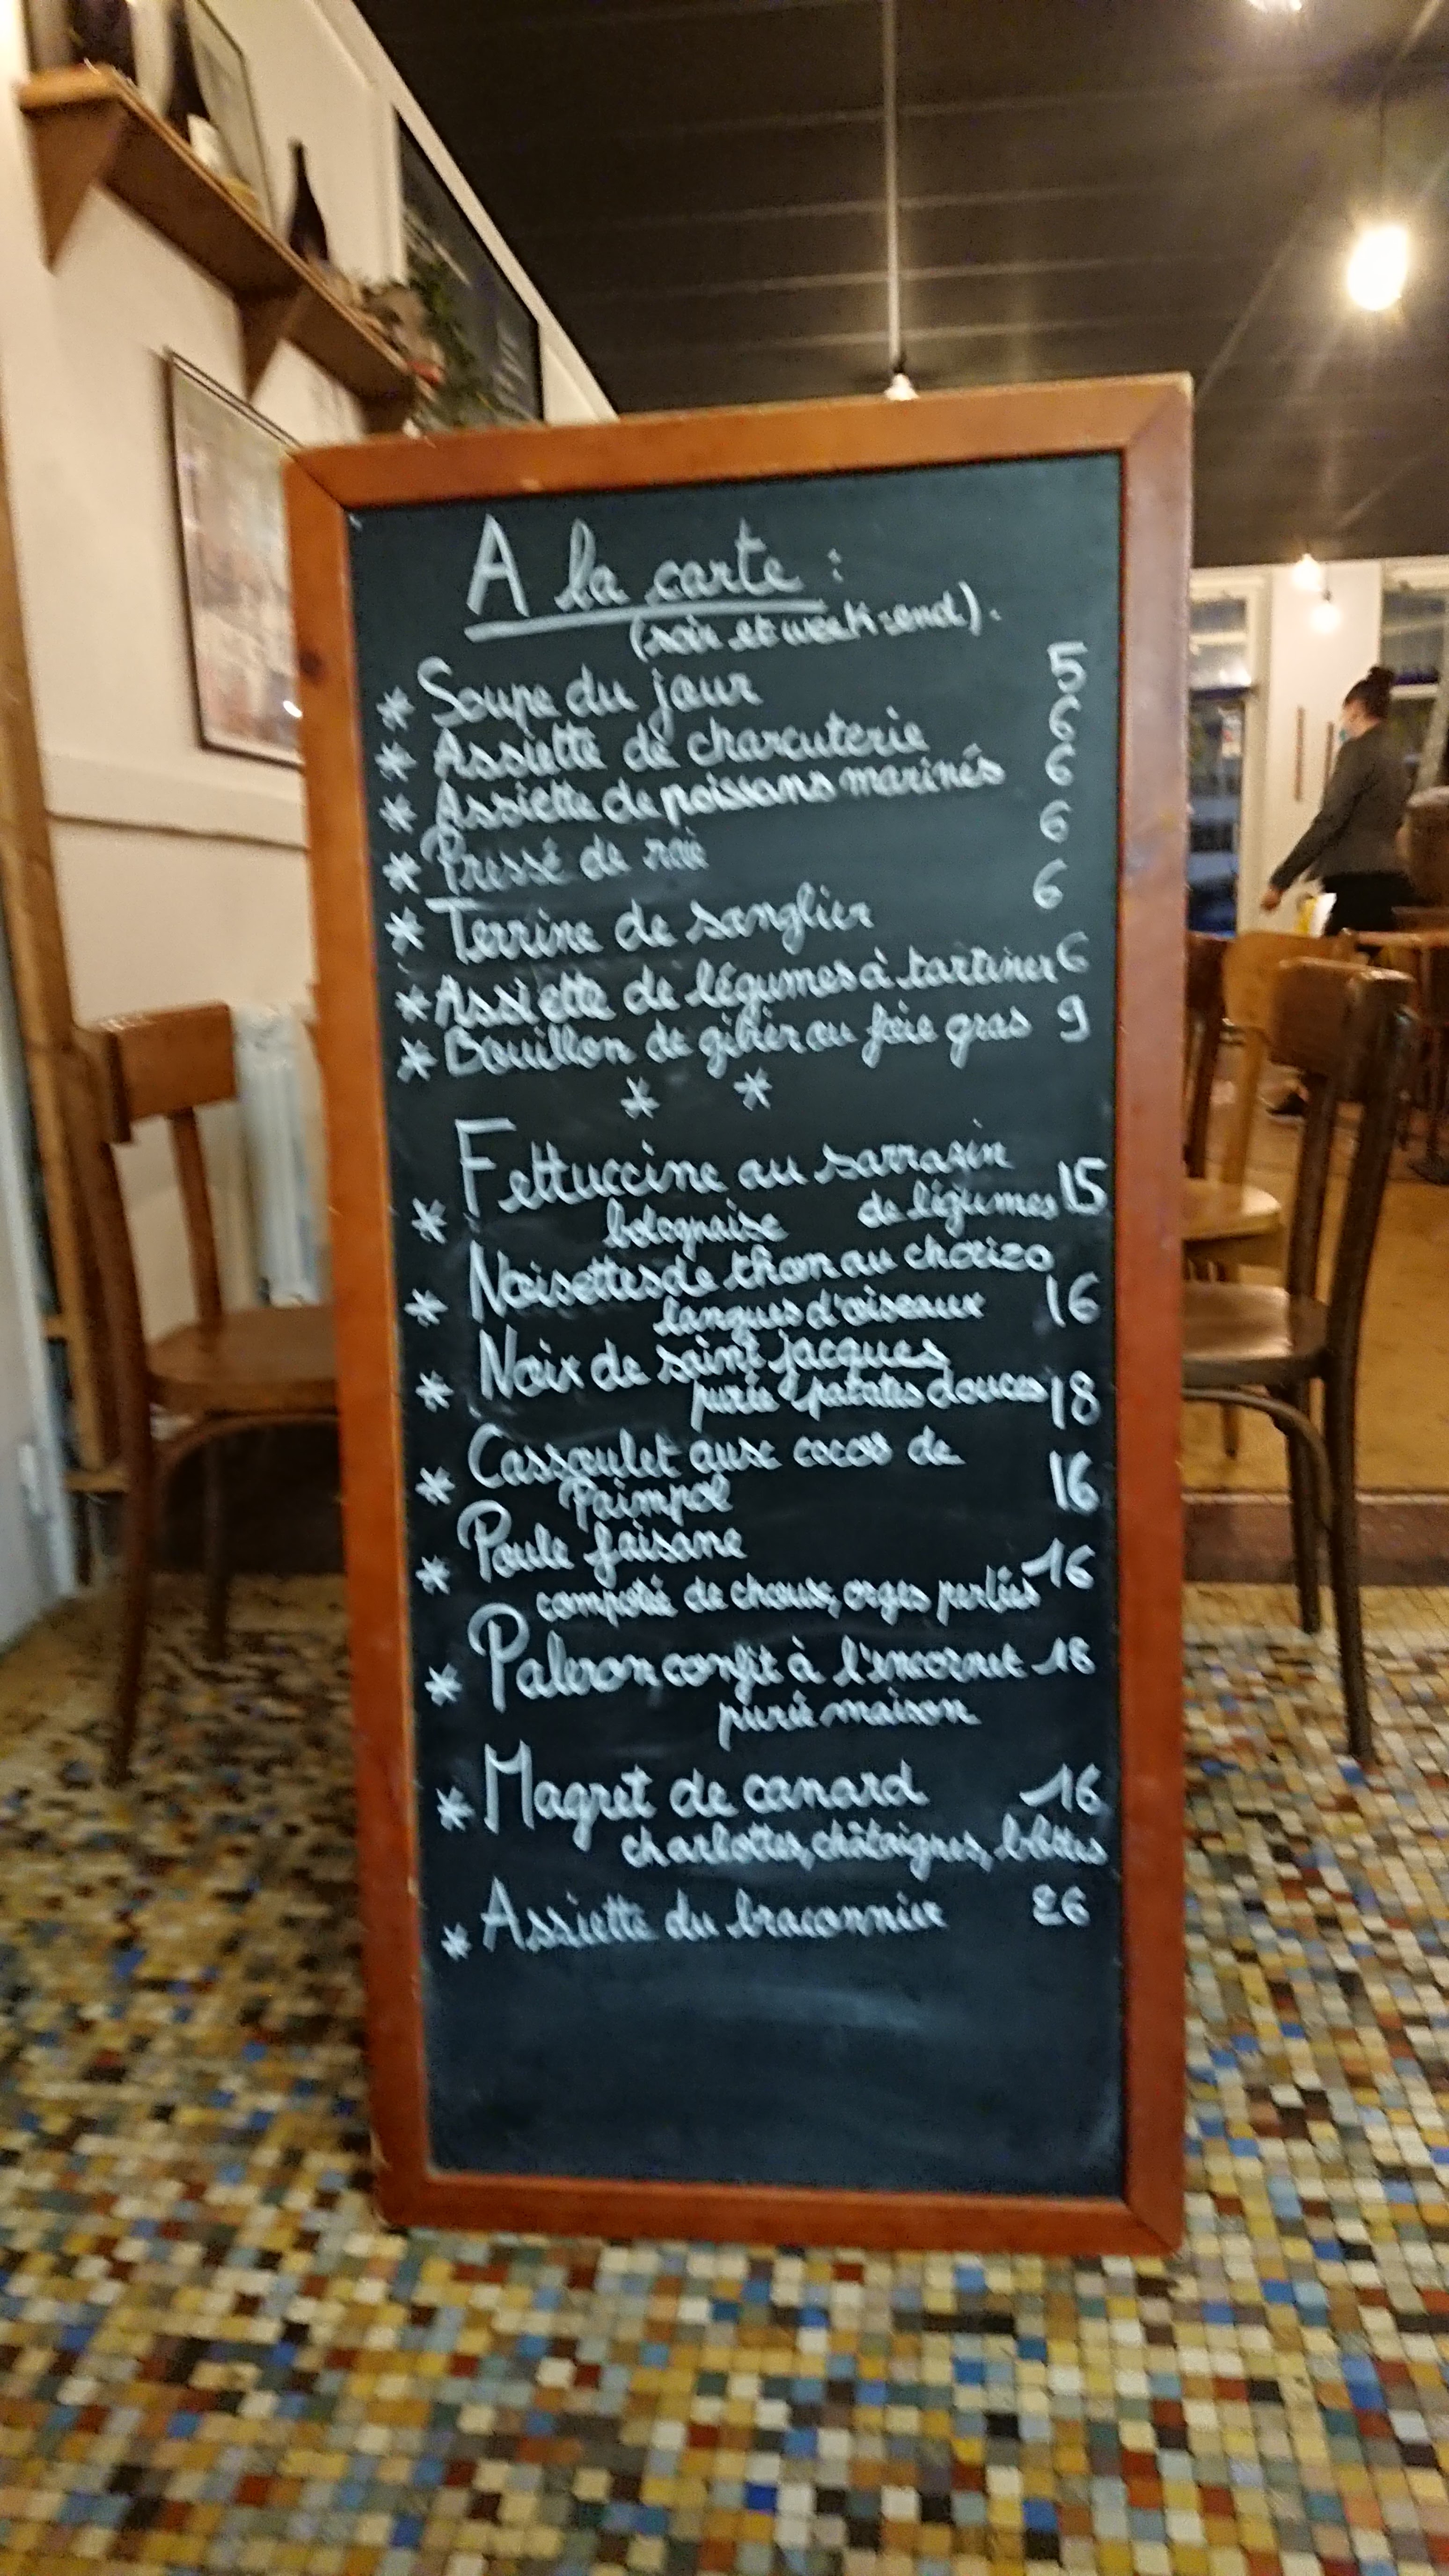 A la carte :
(soir et week-end).
* Soupe du jour 5
* Assiette de charcuterie 6
* Assiette de poissons marinés 6
* Pressé de raie 6
* Terrine de sanglier 6
* Assiette de légumes à tartiner 6
* Bouillon de gibier au foie gras 9
* *
* Fettuccine au sarrasin 15
bolognaise de légumes
* Noisettes de thon au chorizo 16
langues d'oiseaux
* Noix de saint jacques
purée patates douces 18
* Cassoulet aux cocos de 16
Paimpol
* Poule faisane 16
compotée de choux, orges perlées
* Paleron confit à l'encornet 18
purée maison
* Magret de canard 16
charlottes, châtaignes, blettes
* Assiette du braconnier 26